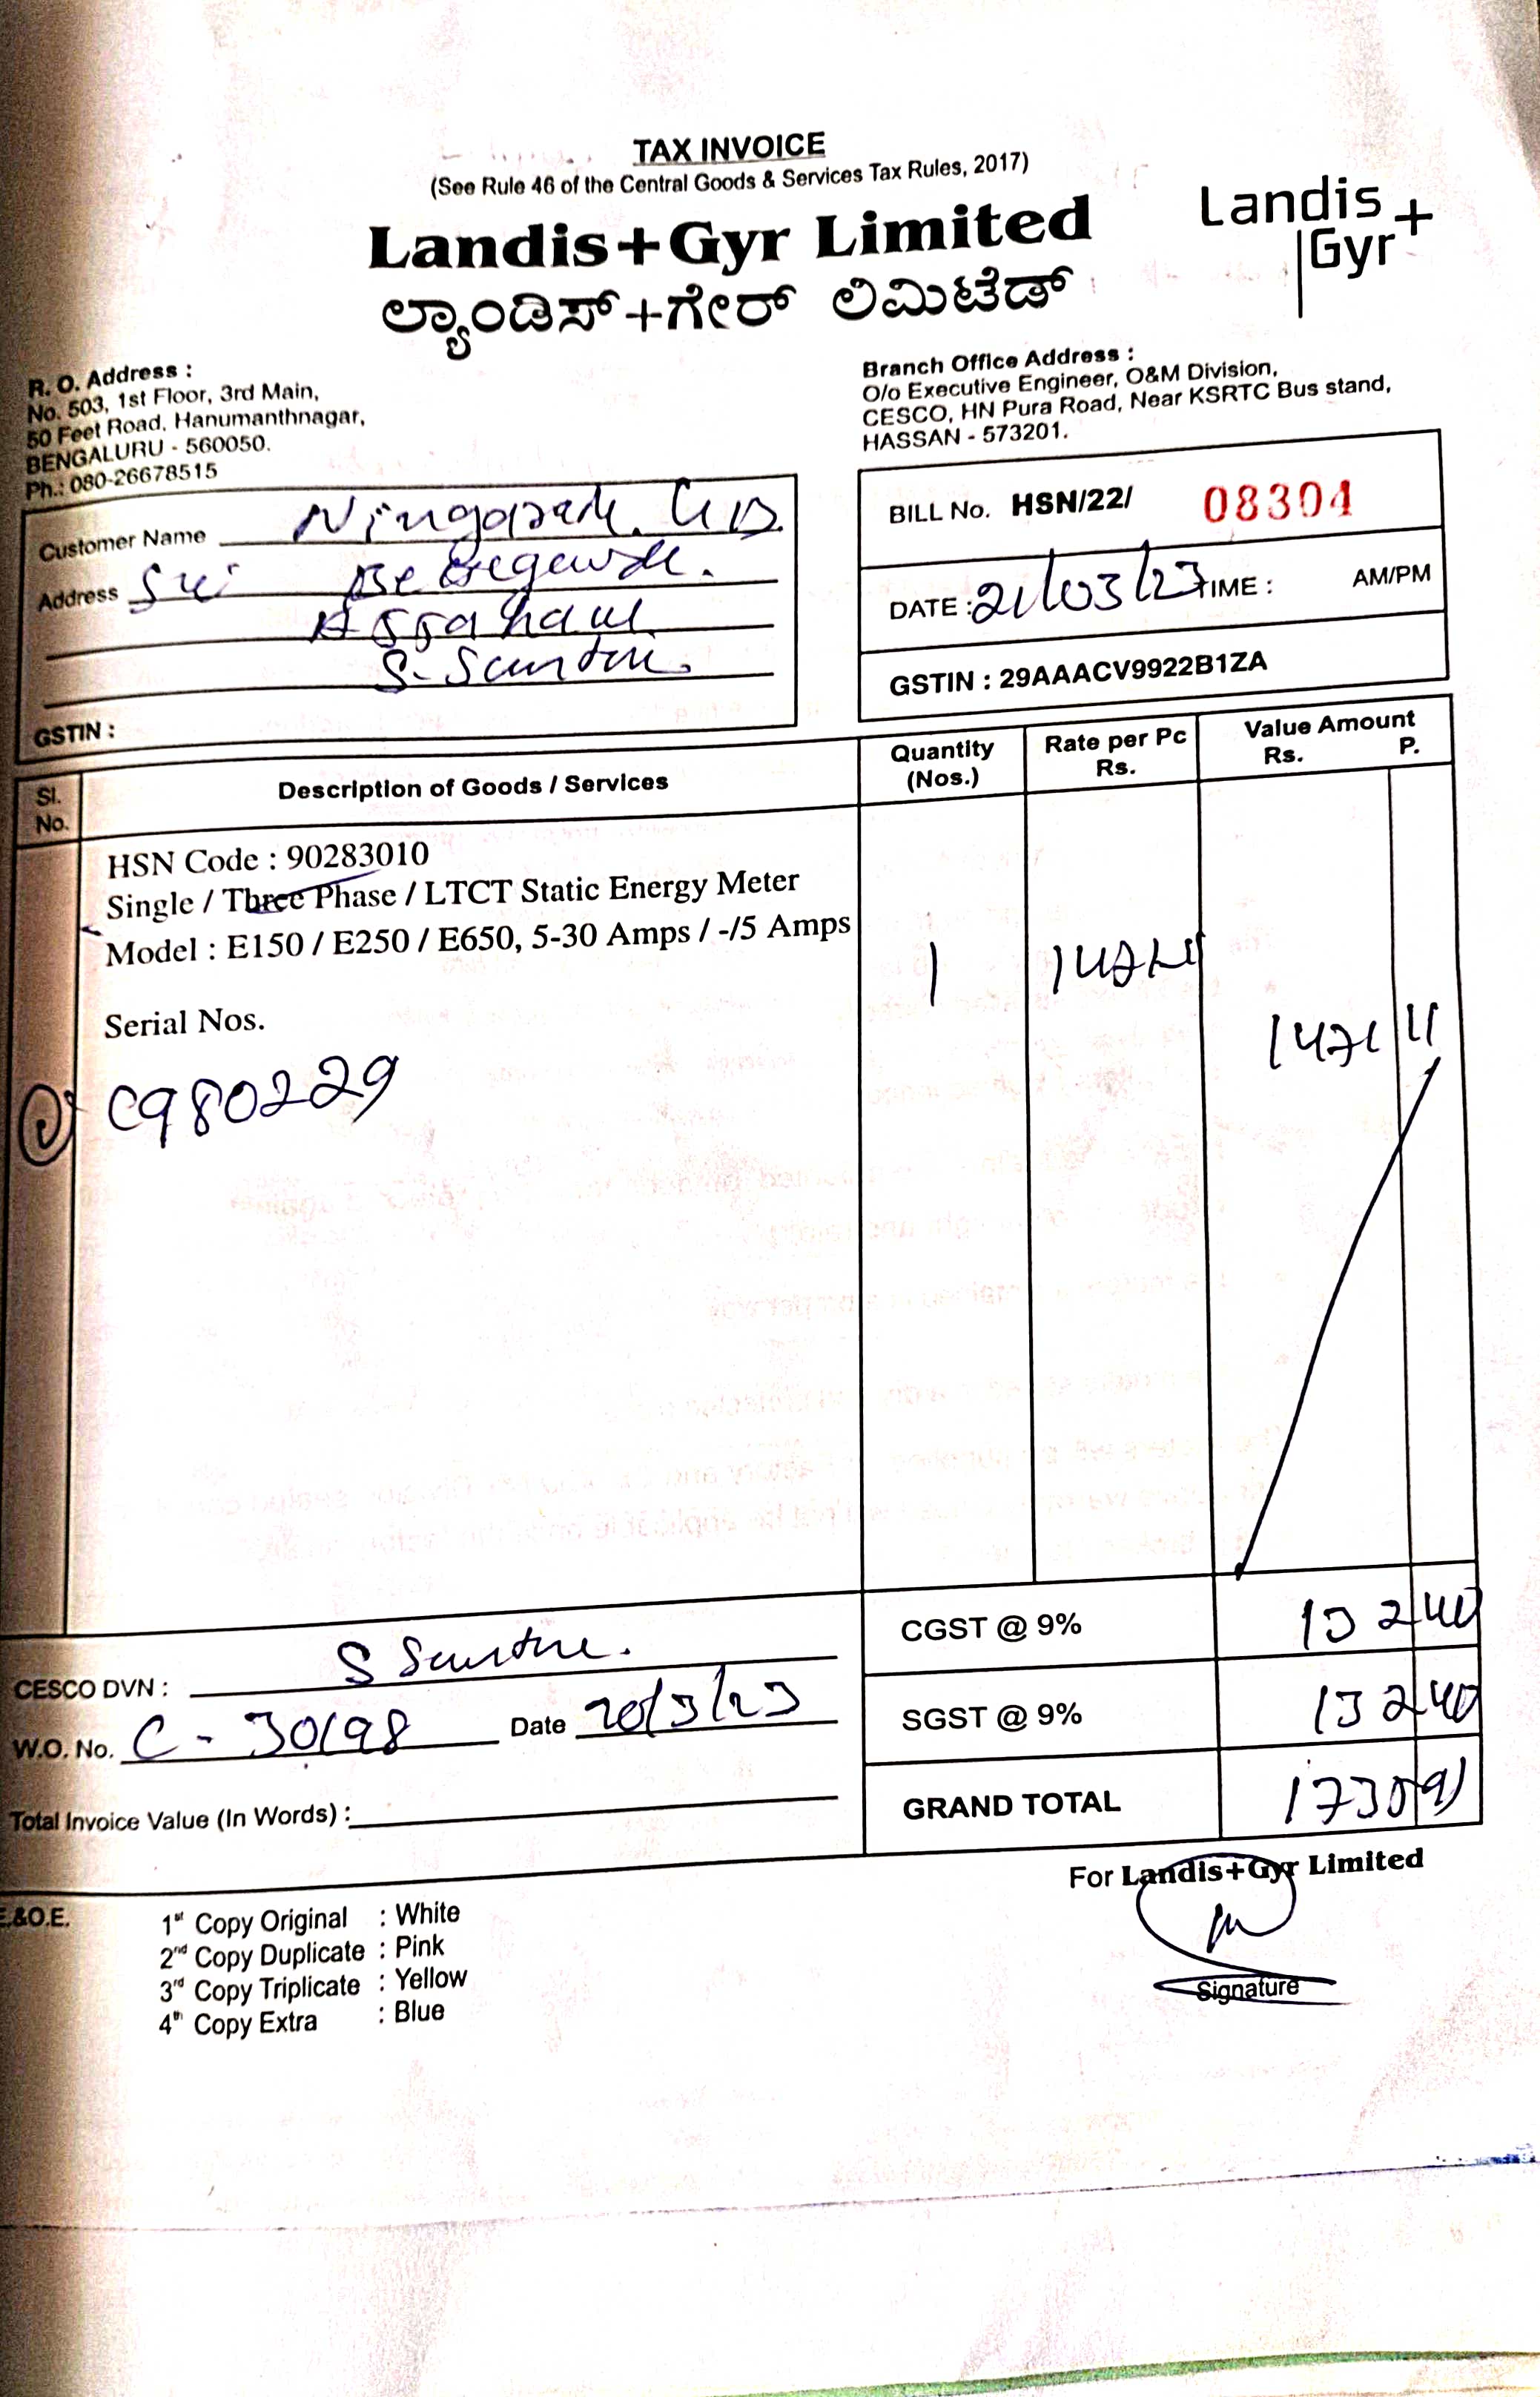 TAX INVOICE
(See Rule 46 of the Central Goods & Services Tax Rules, 2017)
Landis+Gyr Limited
ಲ್ಯಾಂಡಿಸ್+ಗೇರ್ ಲಿಮಿಟೆಡ್
Landis+
Gyr
R. O. Address :
No. 503, 1st Floor, 3rd Main,
50 Feet Road, Hanumanthnagar,
BENGALURU - 560050.
Ph.: 080-26678515
Branch Office Address :
O/o Executive Engineer, O&M Division,
CESCO, HN Pura Road, Near KSRTC Bus stand,
HASSAN - 573201.
Customer Name
Address
GSTIN :
BILL No. HSN/22/ 08304
DATE : 21/03/23 TIME : AM/PM
GSTIN : 29AAACV9922B1ZA
Sl. No. Description of Goods / Services Quantity (Nos.) Rate per Pc Rs. Value Amount Rs. P.
HSN Code : 90283010
Single / Three Phase / LTCT Static Energy Meter
Model : E150 / E250 / E650, 5-30 Amps / -/5 Amps 1
Serial Nos.
1471 11
C980229
CGST @ 9% 132 40
CESCO DVN :
SGST @ 9% 132 40
W.O. No. C - 30198 Date 20/3/23
GRAND TOTAL 1735 91
Total Invoice Value (In Words) :
For Landis+Gyr Limited
E.&O.E.
1st Copy Original : White
2nd Copy Duplicate : Pink
3rd Copy Triplicate : Yellow
4th Copy Extra : Blue
Signature